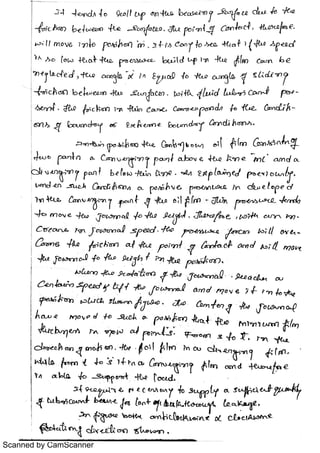 It tends to roll up on the bearing surface due to the
friction between the surfaces. The point of contact, therefore.
will move into position m. It is easy to see that if the speed
is so low that the pressure build up in the film can be
neglected, the angle x is equal to the angle of sliding
friction between the surfaces. With fluid lubricant per-
-sent. the friction in this case corresponds to the condit-
ons of boundary or extreme boundary conditions.
In this position the oil film consisting
two parts a converging part above the line 'm' and a
diverging part below this line. As explained previously.
under such conditions a positive pressure is developed
in the converging part of the oil film. This pressure tends
to move the journal to the right. Therefore, with an in-
crease in journal speed. the pressure force will over-
come the friction at the point of contact and will move
the journal to the right in the position.
When the rotation of the journal reaches a
certain speed if lift the journal and move it in to the
position which shown figure. The centre of the journal
have moved to such a position that the minimum film
thickness is now at point s. From s to t. in the
direction of motion. the oil film is a diverging film.
while from t to s it is a converging film and therefore
is able to support the load.
If require necessary to supply a sufficient quantity
of lubricant because for lost of leakage.
In figure both anticlockwise & clockwise
rotation direction shown.
Scanned by CamScanner